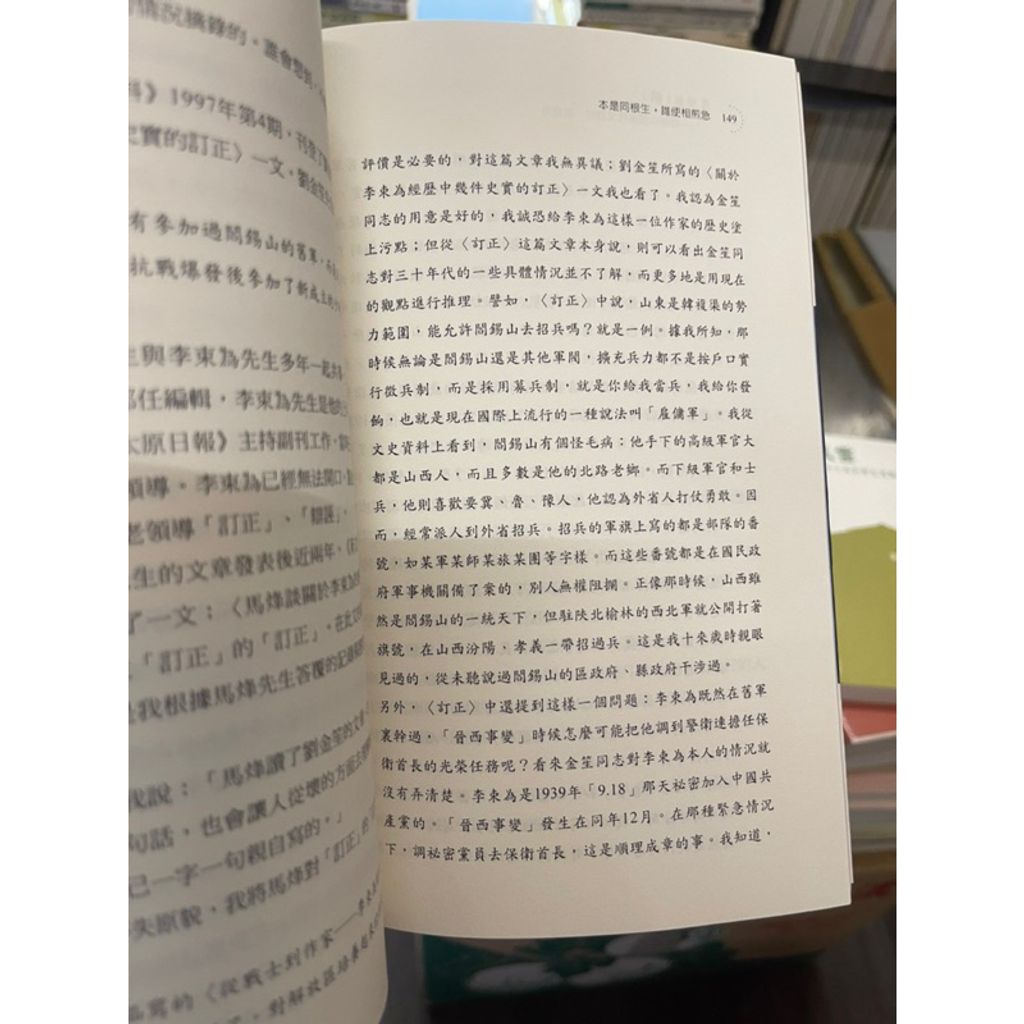 情況摘錄的。誰會想到,
》1997年第4期,刊登了
史實的訂正〉一文。劉金笙
有參加過閻錫山的舊軍,而
抗戰爆發後參加了新成立的
生與李束為先生多年一起共
任編輯,李束為先生是他的
太原日報》主持副刊工作,
領導。李束為已經無法開口,
老領導「訂正」、「辯誣」,
生的文章發表後近兩年,
了一文:〈馬烽談關於李束為
、「訂正」的「訂正」,在此文
是我根據馬烽先生答覆的記錄
我說:「馬烽讀了劉金笙的文章
句話,也會讓人從壞的方面去
己一字一句親自寫的。」
失原貌,我將馬烽對「訂正」的
寫的〈從戰士到作家——李束
對解放區培養起
本是同根生,誰使相煎急 149
評價是必要的,對這篇文章我無異議;劉金笙所寫的〈關於
李束為經歷中幾件史實的訂正〉一文我也看了。我認為金笙
同志的用意是好的,我誠恐給李束為這樣一位作家的歷史塗
上污點;但從〈訂正〉這篇文章本身說,則可以看出金笙同
志對三十年代的一些具體情況並不了解,而更多地是用現在
的觀點進行推理。譬如,〈訂正〉中說,山東是韓複渠的勢
力範圍,能允許閻錫山去招兵嗎?就是一例。據我所知,那
時候無論是閻錫山還是其他軍閥,擴充兵力都不是按戶口實
行徵兵制,而是採用募兵制,就是你給我當兵,我給你發
餉,也就是現在國際上流行的一種說法叫「雇傭軍」。我從
文史資料上看到,閻錫山有個怪毛病:他手下的高級軍官大
都是山西人,而且多數是他的北路老鄉。而下級軍官和士
兵,他則喜歡要冀、魯、豫人,他認為外省人打仗勇敢。因
而,經常派人到外省招兵。招兵的軍旗上寫的都是部隊的番
號,如某軍某師某旅某團等字樣。而這些番號都是在國民政
府軍事機關備了案的,別人無權阻攔。正像那時候,山西雖
然是閻錫山的一統天下,但駐陝北榆林的西北軍就公開打著
旗號,在山西汾陽、孝義一帶招過兵。這是我十來歲時親眼
見過的,從未聽說過閻錫山的區政府、縣政府干涉過。
另外,〈訂正〉中還提到這樣一個問題:李束為既然在舊軍
裏幹過,「晉西事變」時候怎麼可能把他調到警衛連擔任保
衛首長的光榮任務呢?看來金笙同志對李束為本人的情況就
沒有弄清楚。李束為是1939年「9.18」那天祕密加入中國共
產黨的。「晉西事變」發生在同年12月。在那種緊急情況
下,調祕密黨員去保衛首長,這是順理成章的事。我知道,